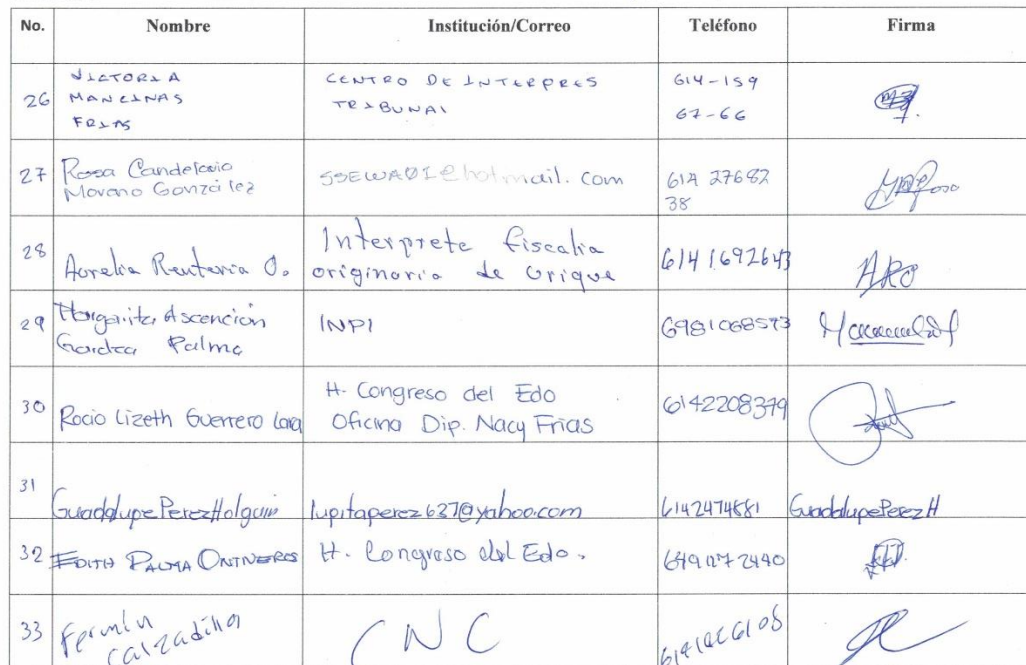 No. Nombre Institución/Correo Teléfono Firma
26 VICTORIA MANCINAS FRIAS CENTRO DE INTERPRES TRIBUNAL 614-159 67-66
27 Rosa Candelario Moreno González SSEWA01@hotmail.com 614 27682 38
28 Aurelia Renteria O. Interprete fiscalia originaria de Urique 614 1692643 ARO
29 Margarita Ascención Gardea Palma INPI 6981068573
30 Rocio Lizeth Guerrero Lara H. Congreso del Edo Oficina Dip. Nacy Frias 6142208379
31 Guadalupe Perez Holguin lupitaperez637@yahoo.com 6142474881 Guadalupe Perez H
32 EDITH PALMA ONTIVEROS H. Congreso del Edo.
33 Fermín Calzadillas CNC